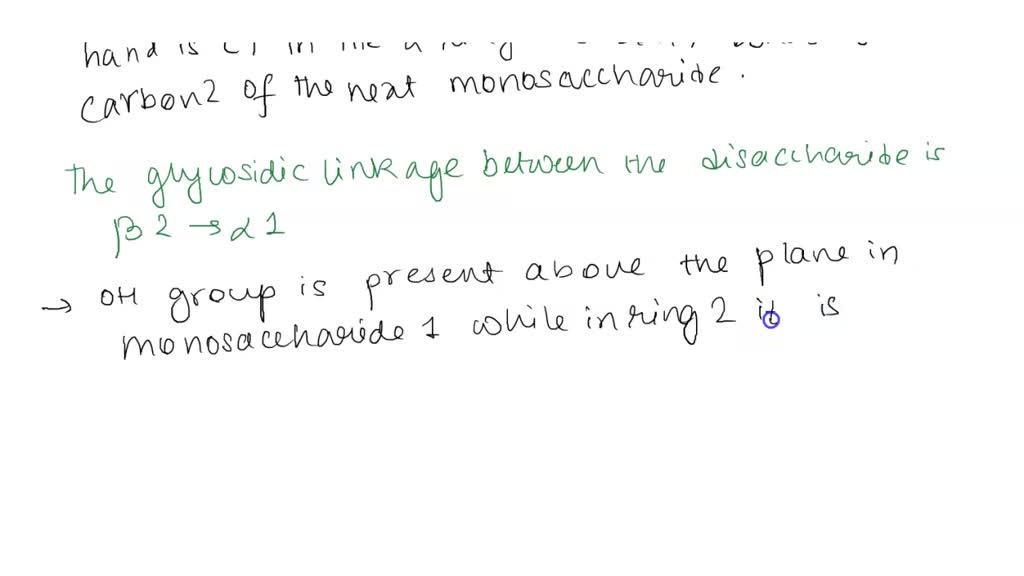 hand is C1 in the
carbon2 of the next monosaccharide.
The glycosidic linkage between the disaccharide is
β 2 → α 1
→ OH group is present above the plane in
monosaccharide 1 while in ring 2 it is